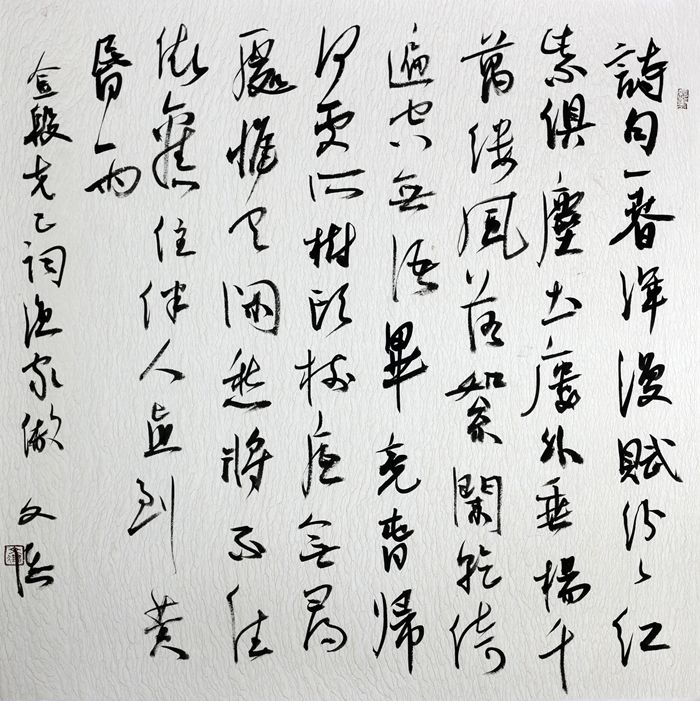 詩句一春渾漫賦紛々红
紫俱塵土廔外垂楊千
萬缕風落絮闌乾倚
遍空無語畢竟春歸
何處所樹頭樹底無尋
處惟有閑愁將不住
依舊住伴人直到黄
昏雨
金段克己詞漁家傲 文